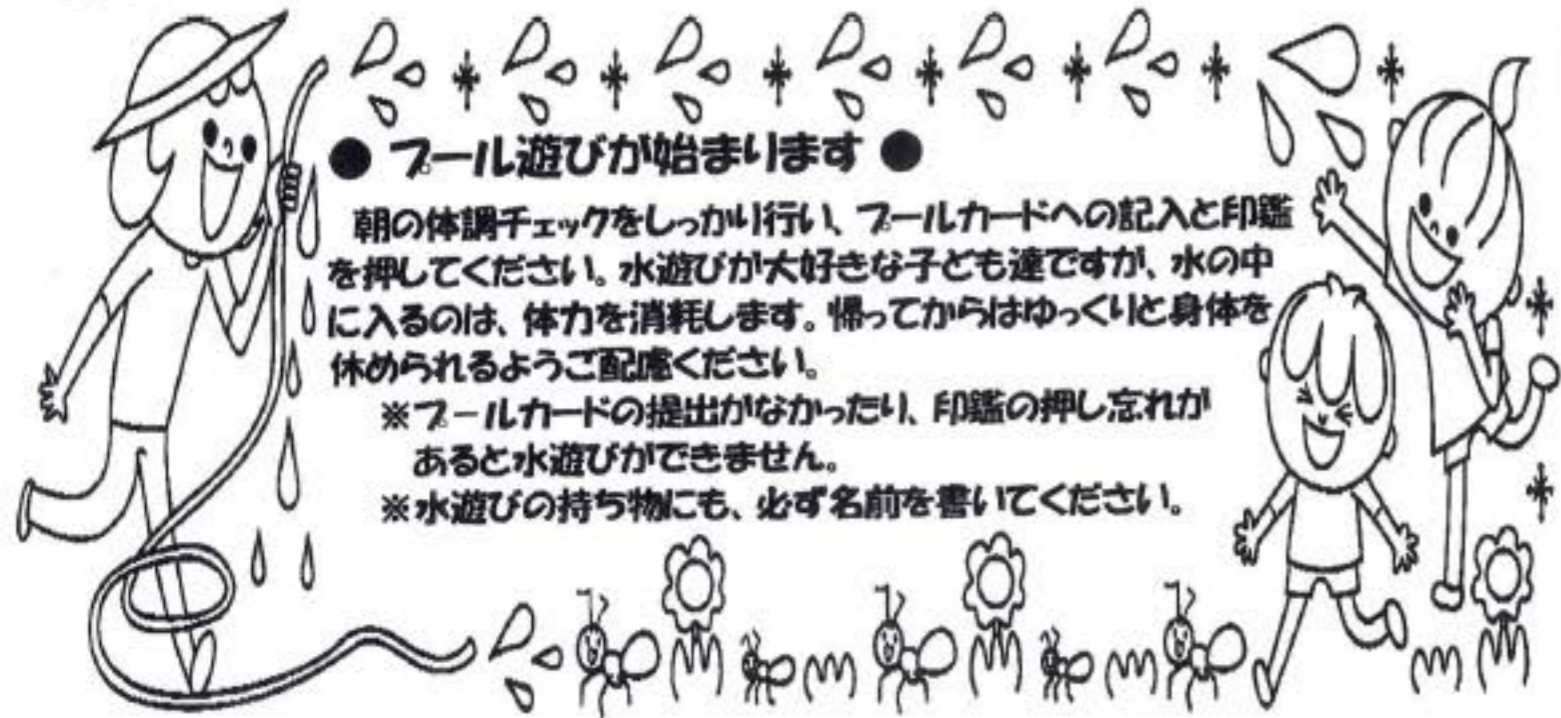 ● プール遊びが始まります ●
朝の体調チェックをしっかり行い、プールカードへの記入と印鑑
を押してください。水遊びが大好きな子ども達ですが、水の中
に入るのは、体力を消耗します。帰ってからはゆっくりと身体を
休められるようご配慮ください。
※プールカードの提出がなかったり、印鑑の押し忘れが
あると水遊びができません。
※水遊びの持ち物にも、必ず名前を書いてください。